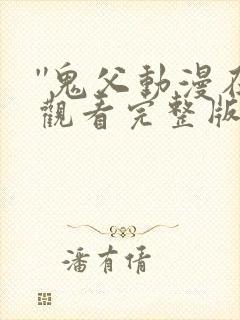 "鬼父動漫在
觀看完整版
潘有倩